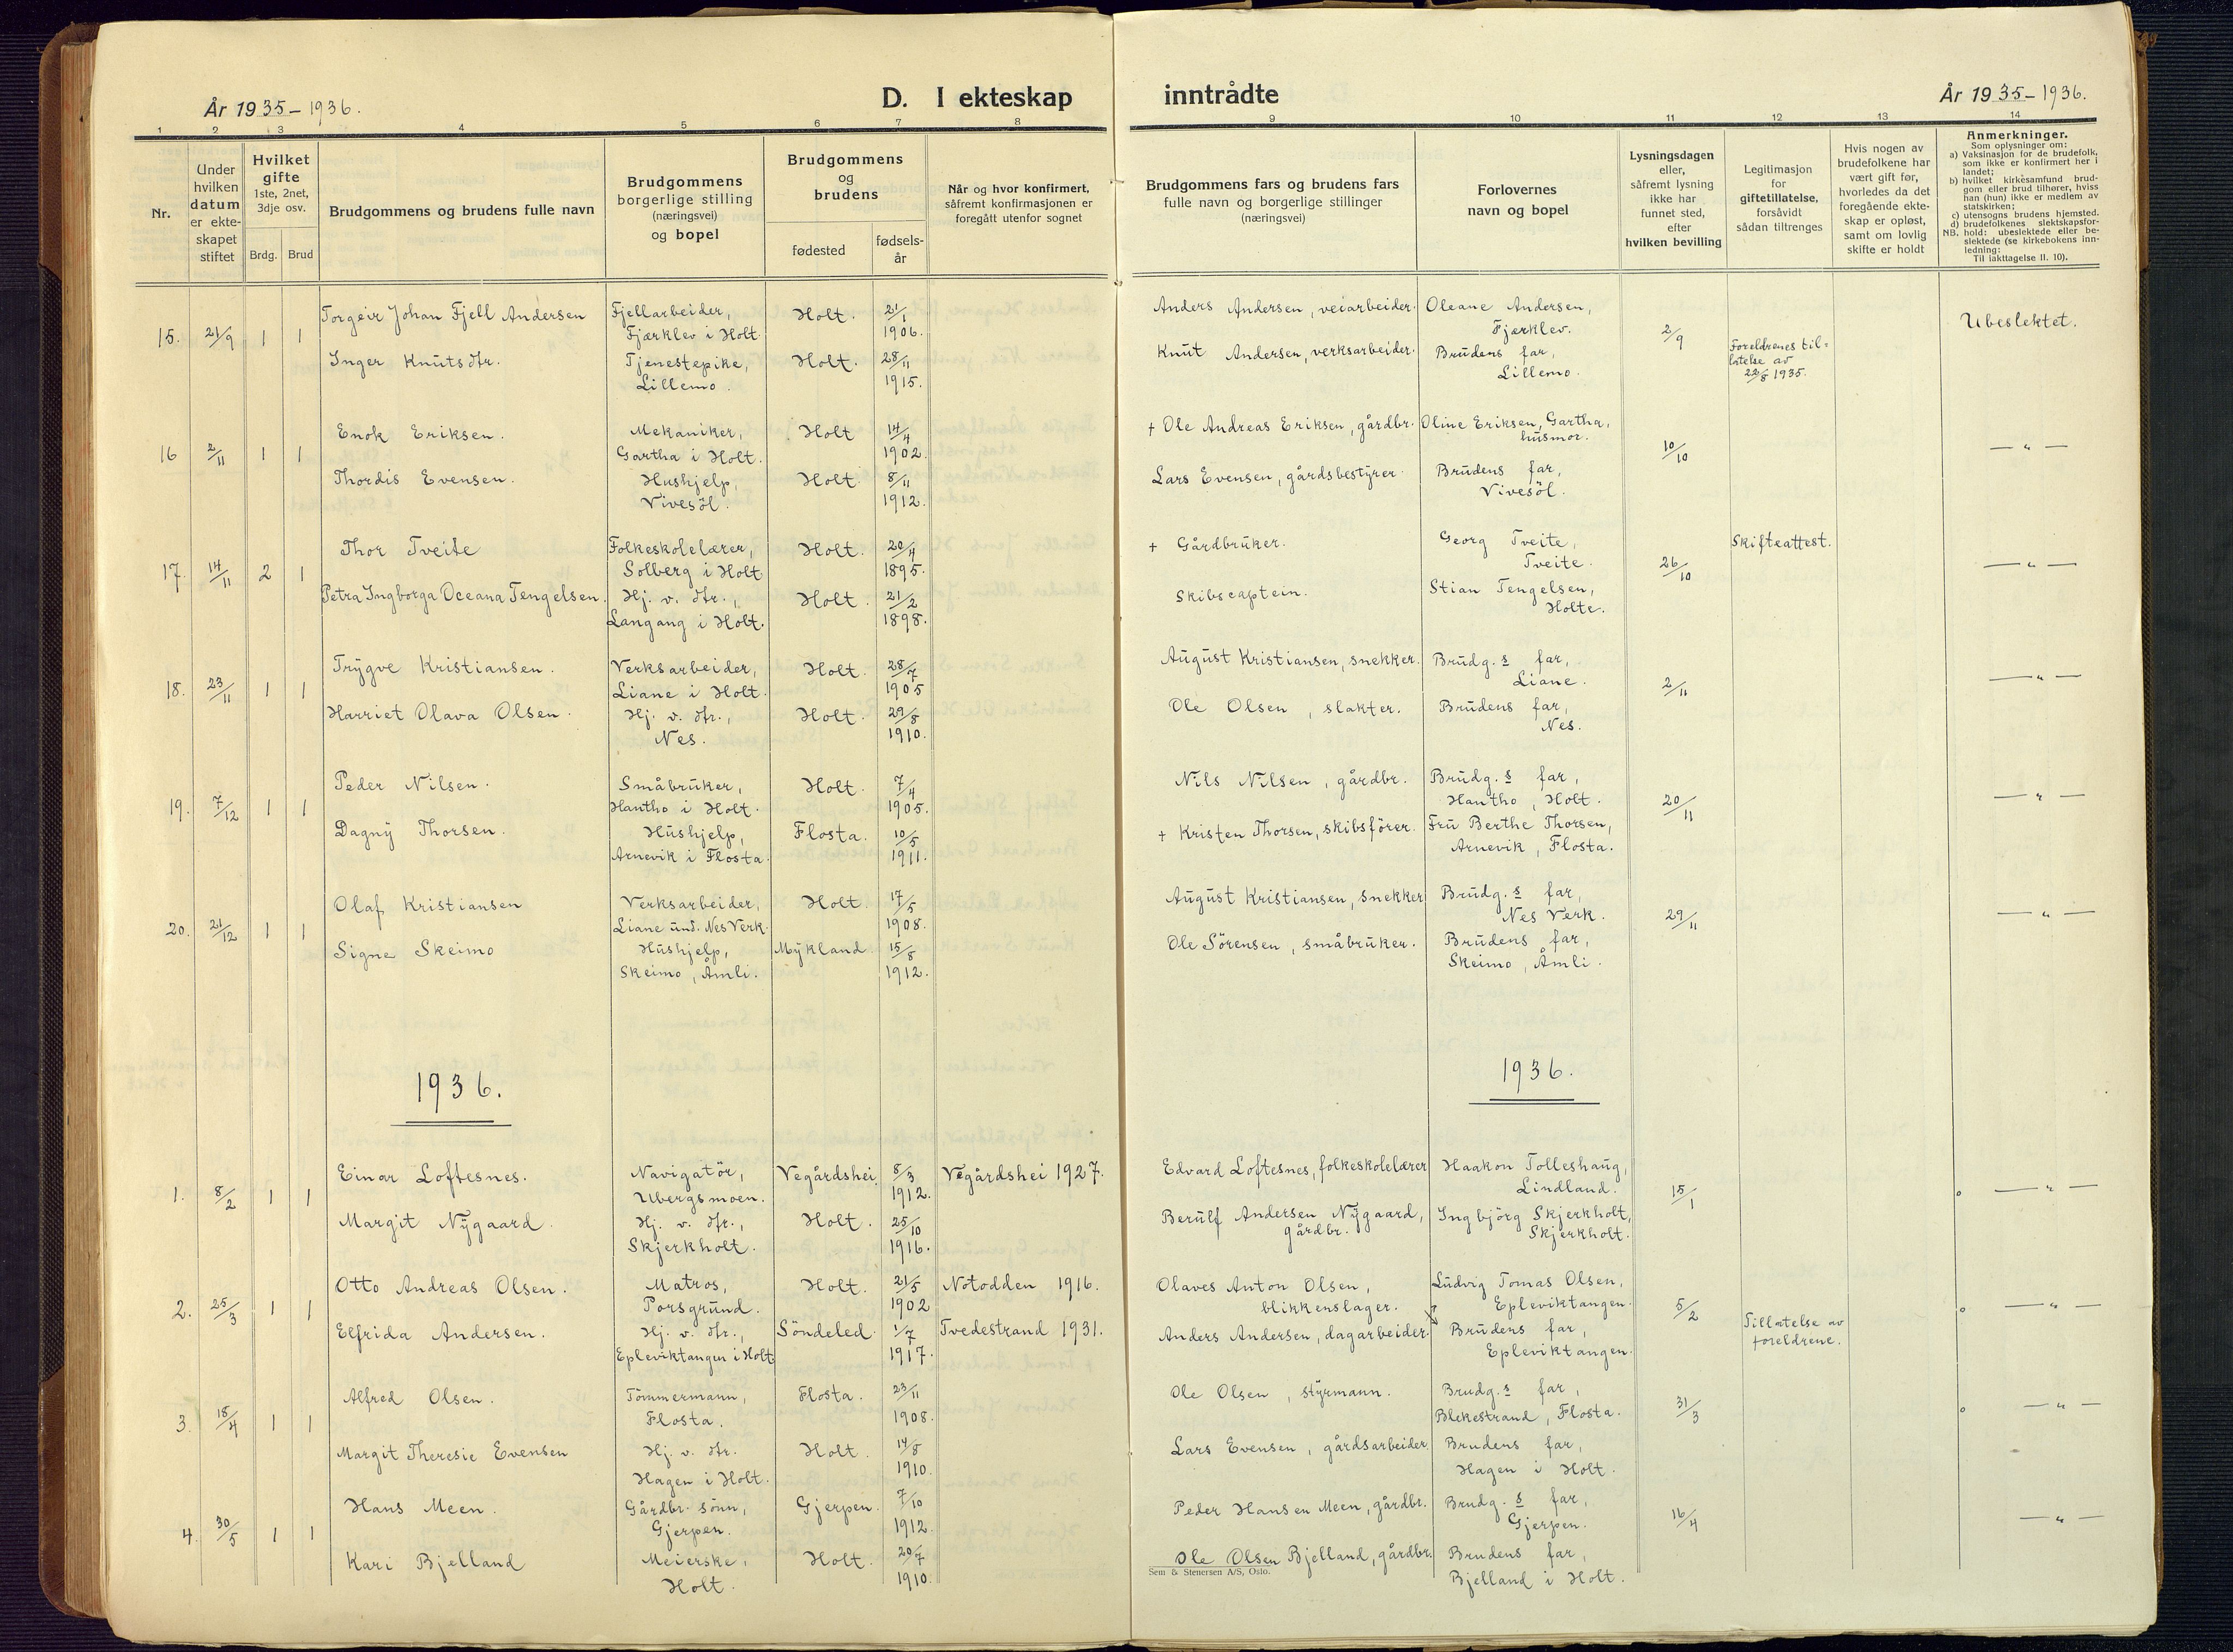 År 1935 – 1936.
D. I ekteskap
inntrådte
År 1935 – 1936.
1 2 3 4 5 6 7 8 9 10 11 12 13 14
Nr.
Under hvilken datum er ekteskapet stiftet
Hvilket gifte
1ste, 2net, 3dje osv.
Brdg. Brud
Brudgommens og brudens fulle navn
Brudgommens borgerlige stilling (næringsvei) og bopel
Brudgommens og brudens
fødested
fødselsår
Når og hvor konfirmert, såfremt konfirmasjonen er foregått utenfor sognet
Brudgommens fars og brudens fars fulle navn og borgerlige stillinger (næringsvei)
Forlovernes navn og bopel
Lysningsdagen eller, såfremt lysning ikke har funnet sted, efter hvilken bevilling
Legitimasjon for giftetillatelse, forsåvidt sådan tiltrenges
Hvis nogen av brudefolkene har vært gift før, hvorledes da det foregående ekteskap er opløst, samt om lovlig skifte er holdt
Anmerkninger.
Som oplysninger om:
a) Vaksinasjon for de brudefolk, som ikke er konfirmert her i landet;
b) hvilket kirkesamfund brudgom eller brud tilhører, hviss han (hun) ikke er medlem av statskirken;
c) utensogns brudens hjemsted.
d) brudefolkenes slektskapsforhold: ubeslektede eller beslektede (se kirkebokens innledning:
NB.
Til iakttagelse II. 10).
15. 21/9 1 1
Torgeir Johan Fjell Andersen Fjellarbeider, Fjærklev i Holt. Holt. 21/1 1906. Anders Andersen, veiarbeider. Oleane Andersen, Fjærklev. 2/9 Ubeslektet.
Inger Knutsdtr. Tjenestepike, Lillemo. Holt. 28/11 1915. Knut Andersen, verksarbeider. Brudens far, Lillemo. Foreldrenes tillatelse av 22/8 1935.
16 2/11 1 1
Enok Eriksen. Mekaniker, Gartha i Holt. Holt 14/4 1902. + Ole Andreas Eriksen, gårdbr. Oline Eriksen, Gartha, husmor. 10/10 — " —
Thordis Evensen. Hushjelp, Vivesöl. Holt. 8/11 1912. Lars Evensen, gårdsbestyrer. Brudens far, Vivesöl.
17. 14/11 2 1
Thor Tveite Folkeskolelærer, Solberg i Holt. Holt. 20/4 1895. + Gårdbruker. Georg Tveite, Tveite. 26/10 Skifteattest. — " —
Petra Ingborga Oceana Tengelsen. Hj. v. dtr., Langang i Holt. Holt. 21/2 1898. Skibscaptein. Stian Tengelsen, Holte.
18. 23/11 1 1
Trygve Kristiansen. Verksarbeider, Liane i Holt. Holt. 28/7 1905 August Kristiansen, snekker. Brudg.s far, Liane. 2/11 — " —
Harriet Olava Olsen. Hj. v. dtr., Nes. Holt. 29/8 1910. Ole Olsen, slakter. Brudens far, Nes.
19. 7/12 1 1
Peder Nilsen. Småbruker, Hantho i Holt. Holt. 7/4 1905. Nils Nilsen, gårdbr. Brudg.s far, Hantho, Holt. 20/11 — " —
Dagny Thorsen. Hushjelp, Arnevik i Flosta. Flosta. 10/5 1911. + Kristen Thorsen, skibsförer. Fru Berthe Thorsen, Arnevik, Flosta.
20. 21/12 1 1
Olaf Kristiansen Verksarbeider, Liane und. Nes Verk. Holt. 17/5 1908. August Kristiansen, snekker Brudg.s far, Nes Verk. 29/11 — " —
Signe Skeimo Hushjelp, Skeimo, Åmli. Mykland 15/8 1912. Ole Sörensen, småbruker. Brudens far, Skeimo, Åmli.
1936.
1936.
1. 8/2 1 1
Einar Loftesnes. Navigatör, Ubergsmoen. Vegårdshei 8/3 1912. Vegårdshei 1927. Edvard Loftesnes, folkeskolelærer Haakon Tolleshaug, Lindland. 15/1 ° — " —
Margit Nygaard. Hj. v. dtr., Skjerkholt. Holt. 25/10 1916. Berulf Andersen Nygaard, gårdbr. Ingbjörg Skjerkholt, Skjerkholt.
2. 25/3 1 1
Otto Andreas Olsen. Matros, Porsgrund. Holt. 21/5 1902 Notodden 1916. Olaves Anton Olsen, blikkenslager. Ludvig Tomas Olsen, Epleviktangen. 5/2 ° — " —
Elfrida Andersen. Hj. v. dtr., Epleviktangen i Holt Söndeled. 1/7 1917. Tvedestrand 1931. Anders Andersen, dagarbeider. Brudens far, Epleviktangen. Tillatelse av foreldrene.
3. 18/4 1 1
Alfred Olsen. Tömmermann, Flosta. Flosta. 23/11 1908. Ole Olsen, styrmann. Brudg.s far, Blekestrand, Flosta. 31/3 ° — " —
Margit Theresie Evensen Hj. v. dtr. Hagen i Holt. Holt. 14/8 1910. Lars Evensen, gårdsarbeider. Brudens far, Hagen i Holt.
4. 30/5 1 1
Hans Meen. Gårdbr. sönn, Gjerpen. Gjerpen. 7/10 1912. Peder Hansen Meen, gårdbr. Brudg.s far, Gjerpen. 16/4 — " —
Kari Bjelland Meierske, Holt. Holt. 20/7 1910. Ole Olsen Bjelland, gårdbr. Brudens far, Bjelland i Holt.
Sem & Stenersen A/S, Oslo.